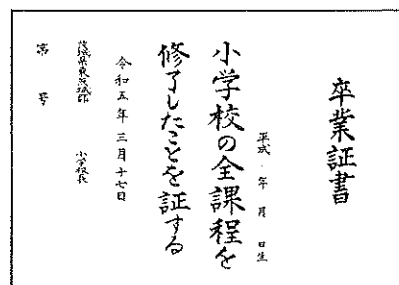 卒業証書
平成 年 月 日生
小学校の全課程を
修了したことを証する
令和五年三月十七日
茨城県東茨城郡
小学校長
第 号